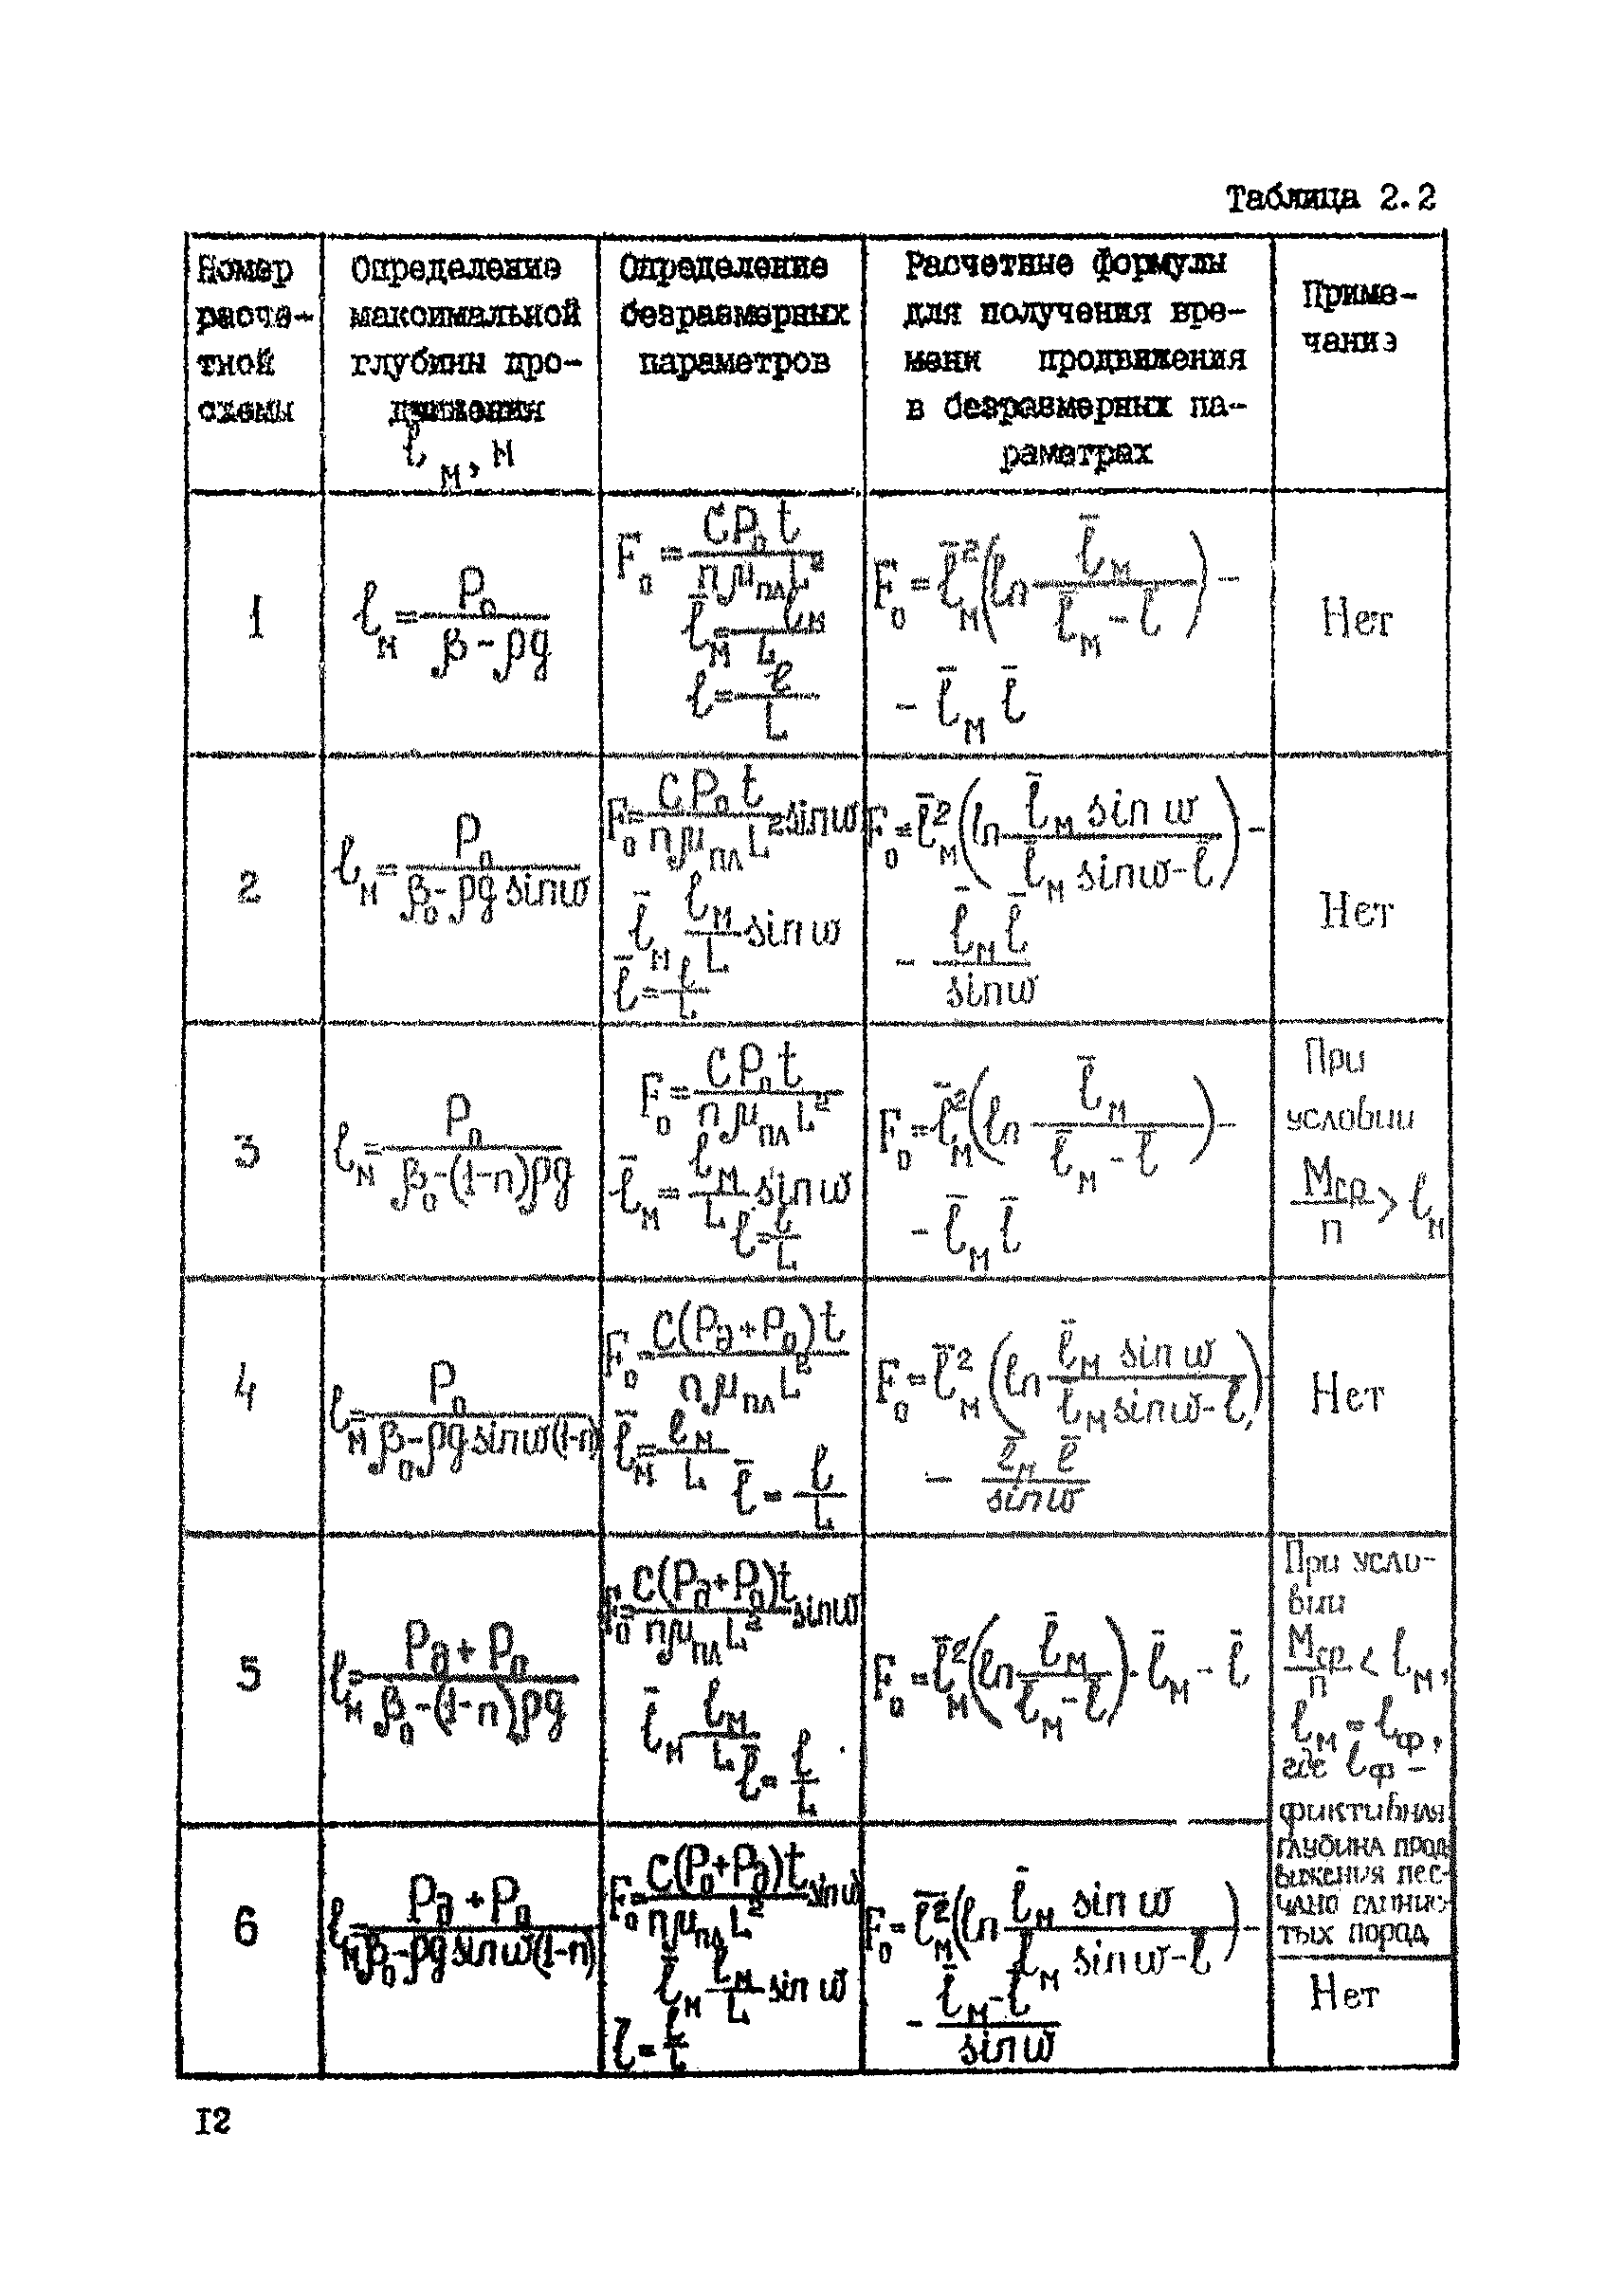 Таблица 2.2
Номер расче-тной схемы
Определение максимальной глубины про-движения l_м, м
Определение безразмерных параметров
Расчетные формулы для получения вре-мени продвижения в безразмерных па-раметрах
Приме-чание
1
l_м = P_0 / (β - ρg)
F_0 = C P_0 t / (n μ_пл L²)
l̄_м = l_м / L
l = l / L
F_0 = l̄_м² (ln l̄_м / (l̄_м - l̄)) -
- l̄_м l̄
Нет
2
l_м = P_0 / (β_0 - ρg sin w)
F_0 = C P_0 t / (n μ_пл L²) sin w
l̄_м l_м / L sin w
l̄ = l / L
F_0 = l̄_м² (ln l̄_м sin w / (l̄_м sin w - l̄)) -
- l̄_м l̄ / sin w
Нет
3
l_м = P_0 / (β_0 - (1-n)ρg)
F_0 = C P_0 t / (n μ_пл L²)
l̄_м = l_м / L sin w
l = l / L
F_0 = l̄_м² (ln l̄_м / (l̄_м - l̄)) -
- l̄_м l̄
При
условии
M_ср / n > l_м
4
l_м = P_0 / (β_0 - ρg sin w(1-n))
F_0 = C(P_д + P_0)t / (n μ_пл L²)
l̄_м = l_м / L
l̄ = l / L
F_0 = l̄_м² (ln l̄_м sin w / (l̄_м sin w - l̄))
- l̄_м l̄ / sin w
Нет
5
l_м = (P_д + P_0) / (β_0 - (1-n)ρg)
F_0 = C(P_д + P_0)t / (n μ_пл L²) sin w
l̄_м l_м / L
l̄ = l / L
F_0 = l̄_м² (ln l̄_м / (l̄_м - l̄)) - l̄_м - l̄
При усло-
вии
M_ср / n < l_м,
l_м = l_ф,
где l_ф -
фиктивная
глубина прод
вижения пес-
чано глинис-
тых пород
6
l_м = (P_д + P_0) / (β_0 - ρg sin w(1-n))
F_0 = C(P_0 + P_д)t / (n μ_пл L²) sin w
l̄_м l_м / L sin w
l̄ = l / L
F_0 = l̄_м² (ln l̄_м sin w / (l̄_м sin w - l̄)) -
- l̄_м - l̄ / sin w
Нет
I2